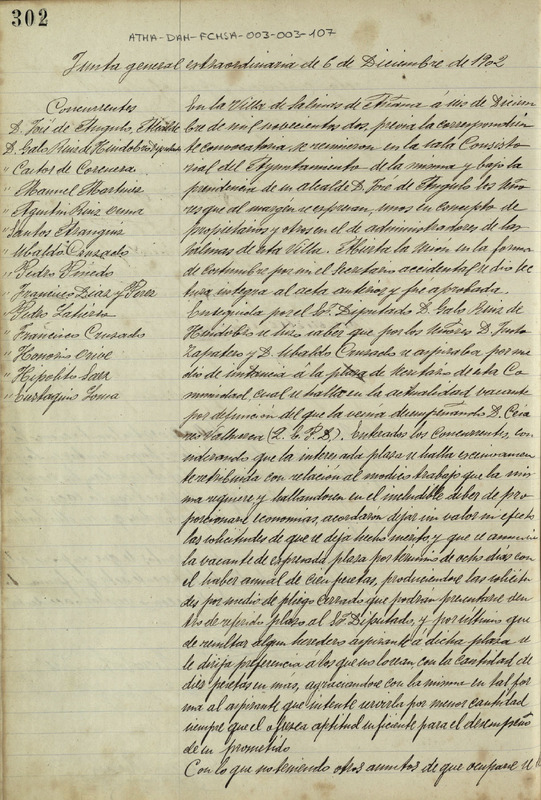 302
ATHA-DAH-FCHSA-003-003-107
Junta general extraordinaria de 6 de Diciembre de 1902
Concurrentes
D. José de Angulo, Alcalde
D. Galo Ruiz de Hindobro Diputado
" Castor de Corcuera
" Manuel Martinez
" Agustin Ruiz
" Santos
" Ubaldo Cruzado
" Pedro Pinedo
" Francisco Diaz y Perez
" Pedro
" Francisco Cruzado
" Honorio Orive
" Hipolito Saez
" Eustaquio
En la Villa de Salinas de Añana á seis de Diciem
bre de mil novecientos dos, previa la correspondien
te convocatoria, se reunieron en la sala Consisto
rial del Ayuntamiento de la misma y bajo la
presidencia de su alcalde D. José de Angulo los Seño
res que al margen se expresan, unos en concepto de
propietarios y otros en el de administradores de las
salinas de esta Villa. Abierta la sesion en la forma
de costumbre por mi el Secretario accidental se dio lec
tura integra al acta anterior y fue aprobada.
Enseguida por el Sr. Diputado D. Galo Ruiz de
Hindobro se hizo saber que por los Señores D. Justo
Zapatero y D. Ubaldo Cruzado se aspiraba por me
dio de instancia á la plaza de Secretario de esta Co
munidad, cual se halla en la actualidad vacante
por defuncion del que la venia desempeñando D. Ceci
lio Valluerca (Q. E. P. D.). Enterados los concurrentes, con
siderando que la interesada plaza se halla excesivamen
te retribuida con relación al modico trabajo que la mis
ma requiere y hallandose en el ineludible deber de pro
porcionarse economias, acordaron dejar sin valor ni efecto
las solicitudes de que se deja hecho merito, y que se anuncie
la vacante de expresada plaza por termino de ocho dias con
el haber anual de cien pesetas, produciendose las solicitu
des por medio de pliego cerrado que podran presentarse den
tro de referido plazo al Sr. Diputado, y por último que
de resultar algun heredero aspirante á dicha plaza se
le dirija preferencia á los que no lo sean con la cantidad de
diez pesetas en más, agraciandose con la misma en tal for
ma al aspirante que intente servirla por menor cantidad
siempre que el ofrezca aptitud suficiente para el desempeño
de su prometido
Con lo que no teniendo otros asuntos de que ocuparse se